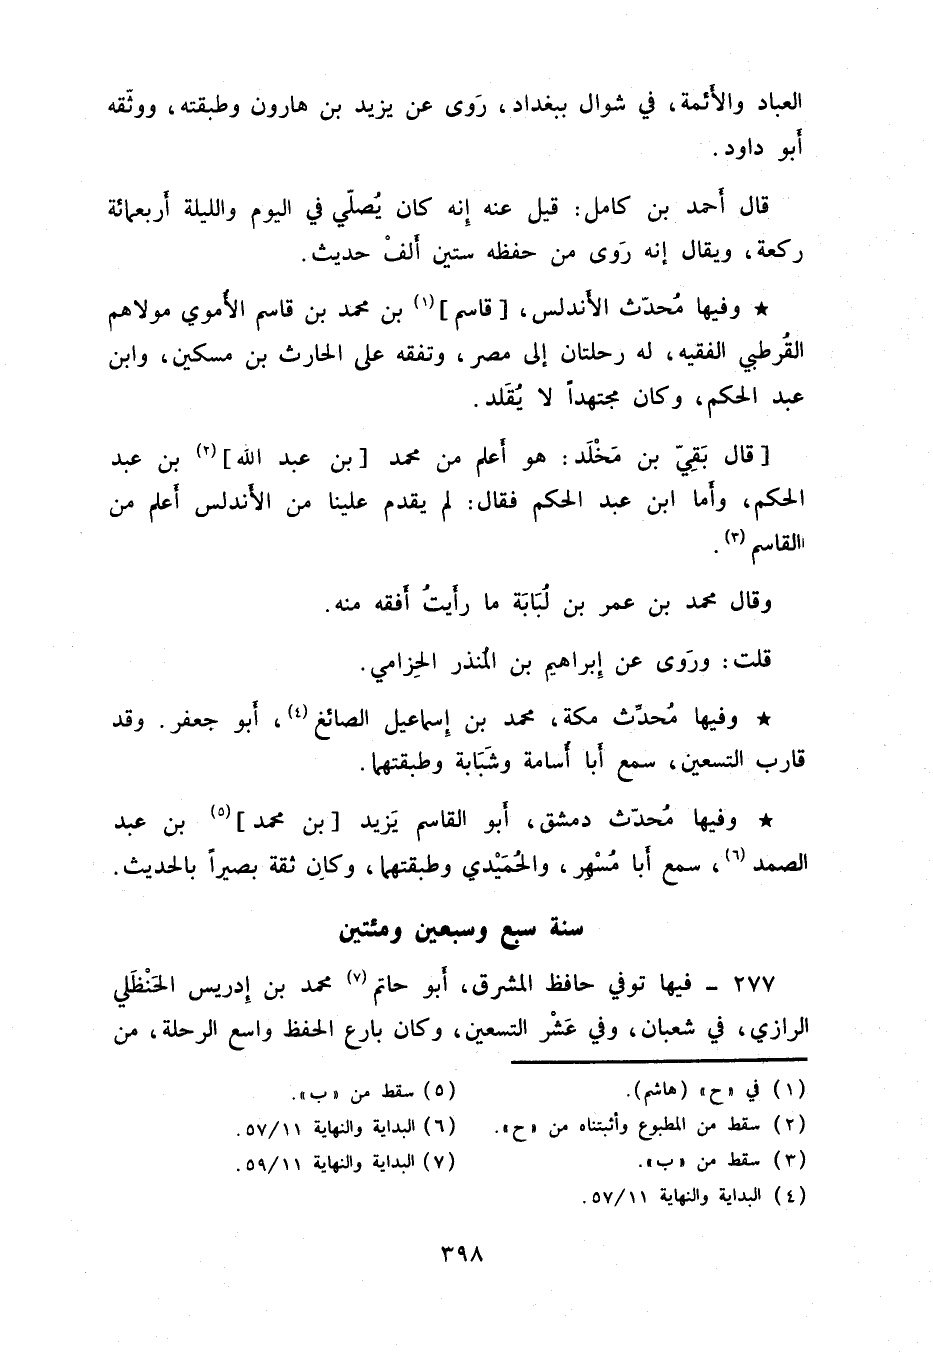 العباد والأَئمة، في شوال ببغداد، رَوى عن يزيد بن هارون وطبقته، ووثّقه
أَبو داود.
قال أَحمد بن كامل: قيل عنه إِنه كان يُصلّي في اليوم والليلة أَربعمائة
ركعة، ويقال إنه رَوى من حفظه ستين أَلفْ حديث.
★ وفيها مُحدّث الأندلس، [قاسم](١) بن محمد بن قاسم الأُموي مولاهم
القُرطبي الفقيه، له رحلتان إلى مصر، وتفقه على الحارث بن مسكين، وابن
عبد الحكم، وكان مجتهداً لا يُقَلد.
[قال بَقِيّ بن مَخْلَد: هو أَعلم من محمد [بن عبد الله](٢) بن عبد
الحكم، وأَما ابن عبد الحكم فقال: لم يقدم علينا من الأَندلس أَعلم من
القاسم(٣).
وقال محمد بن عمر بن لُبَابَة ما رأَيتُ أَفقه منه.
قلت: ورَوى عن إِبراهيم بن المُنذر الحِزامي.
★ وفيها مُحدِّث مكة، محمد بن إِسماعيل الصائغ(٤)، أَبو جعفر. وقد
قارب التسعين، سمع أَبا أُسامة وشَبَابة وطبقتهما.
★ وفيها مُحدّث دمشق، أَبو القاسم يَزيد [بن محمد](٥) بن عبد
الصمد(٦)، سمع أَبا مُسْهِر، والحُمَيْدي وطبقتهما، وكان ثقة بصيراً بالحديث.
سنة سبع وسبعين ومئتين
٢٧٧ ـ فيها توفي حافظ المشرق، أَبو حاتم(٧) محمد بن إِدريس الحَنْظَلي
الرازي، في شعبان، وفي عَشْر التسعين، وكان بارع الحفظ واسع الرحلة، من
(١) في «ح» (هاشم).
(٢) سقط من المطبوع وأثبتناه من «ح».
(٣) سقط من «ب».
(٤) البداية والنهاية ٥٧/١١.
(٥) سقط من «ب».
(٦) البداية والنهاية ٥٧/١١.
(٧) البداية والنهاية ٥٩/١١.
٣٩٨